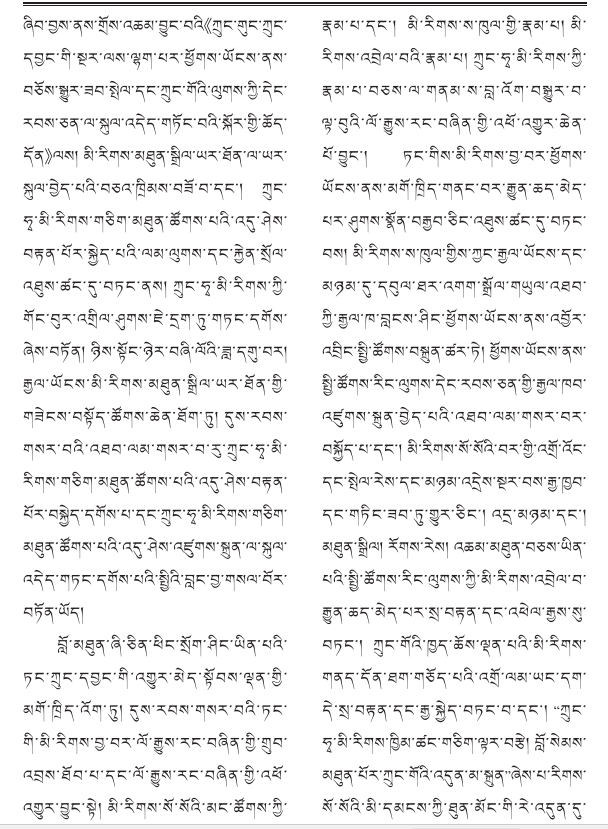 ཞིབ་བྱས་ནས་གྲོས་འཆམ་བྱུང་བའི《ཀྲུང་གུང་ཀྲུང་
དབྱང་གི་སྔར་ལས་ལྷག་པར་ཕྱོགས་ཡོངས་ནས་
བཅོས་སྒྱུར་ཟབ་སྤེལ་དང་ཀྲུང་གོའི་ལུགས་ཀྱི་དེང་
རབས་ཅན་ལ་སྐུལ་འདེད་གཏོང་བའི་སྐོར་གྱི་ཆོད་
དོན》ལས། མི་རིགས་མཐུན་སྒྲིལ་ཡར་ཐོན་ལ་ཡར་
སྐུལ་བྱེད་པའི་བཅའ་ཁྲིམས་བཟོ་བ་དང༌། ཀྲུང་
ཧྭ་མི་རིགས་གཅིག་མཐུན་ཚོགས་པའི་འདུ་ཤེས་
བརྟན་པོར་སྐྱེད་པའི་ལམ་ལུགས་དང་རྐྱེན་སྲོལ་
འཐུས་ཚང་དུ་བཏང་ནས། ཀྲུང་ཧྭ་མི་རིགས་ཀྱི་
གོང་བུར་འགྲིལ་ཤུགས་ཇེ་དྲག་ཏུ་གཏང་དགོས་
ཞེས་བཏོན། ཉིས་སྟོང་ཉེར་བཞི་ལོའི་ཟླ་དགུ་བར།
རྒྱལ་ཡོངས་མི་རིགས་མཐུན་སྒྲིལ་ཡར་ཐོན་གྱི་
གཟེངས་བསྟོད་ཚོགས་ཆེན་ཐོག་ཏུ། དུས་རབས་
གསར་བའི་འཐབ་ལམ་གསར་བ་རུ་ཀྲུང་ཧྭ་མི་
རིགས་གཅིག་མཐུན་ཚོགས་པའི་འདུ་ཤེས་བརྟན་
པོར་བསྐྱེད་དགོས་པ་དང་ཀྲུང་ཧྭ་མི་རིགས་གཅིག་
མཐུན་ཚོགས་པའི་འདུ་ཤེས་འཛུགས་སྐྲུན་ལ་སྐུལ་
འདེད་གཏང་དགོས་པའི་སྤྱིའི་བླང་བྱ་གསལ་པོར་
བཏོན་ཡོད།
བློ་མཐུན་ཞི་ཅིན་ཕིང་སྲོག་ཤིང་ཡིན་པའི་
ཏང་ཀྲུང་དབྱང་གི་འགྱུར་མེད་སྟོབས་ལྡན་གྱི་
མགོ་ཁྲིད་འོག་ཏུ། དུས་རབས་གསར་བའི་ཏང་
གི་མི་རིགས་བྱ་བར་ལོ་རྒྱུས་རང་བཞིན་གྱི་གྲུབ་
འབྲས་ཐོབ་པ་དང་ལོ་རྒྱུས་རང་བཞིན་གྱི་འཕོ་
འགྱུར་བྱུང་སྟེ། མི་རིགས་སོ་སོའི་མང་ཚོགས་ཀྱི་
རྣམ་པ་དང༌། མི་རིགས་ས་ཁུལ་གྱི་རྣམ་པ། མི་
རིགས་འབྲེལ་བའི་རྣམ་པ། ཀྲུང་ཧྭ་མི་རིགས་ཀྱི་
རྣམ་པ་བཅས་ལ་གནམ་ས་བླ་འོག་བསྒྱུར་བ་
ལྟ་བུའི་ལོ་རྒྱུས་རང་བཞིན་གྱི་འཕོ་འགྱུར་ཆེན་
པོ་བྱུང༌། ཏང་གིས་མི་རིགས་བྱ་བར་ཕྱོགས་
ཡོངས་ནས་མགོ་ཁྲིད་གནང་བར་རྒྱུན་ཆད་མེད་
པར་ཤུགས་སྣོན་བརྒྱབ་ཅིང་འཐུས་ཚང་དུ་བཏང་
བས། མི་རིགས་ས་ཁུལ་གྱིས་ཀྱང་རྒྱལ་ཡོངས་དང་
མཉམ་དུ་དབུལ་ཐར་འགག་སྒྲོལ་གཡུལ་འཐབ་
ཀྱི་རྒྱལ་ཁ་བླངས་ཤིང་ཕྱོགས་ཡོངས་ནས་འབྱོར་
འབྲིང་སྤྱི་ཚོགས་བསྐྲུན་ཚར་ཏེ། ཕྱོགས་ཡོངས་ནས་
སྤྱི་ཚོགས་རིང་ལུགས་དེང་རབས་ཅན་གྱི་རྒྱལ་ཁབ་
འཛུགས་སྐྲུན་བྱེད་པའི་འཐབ་ལམ་གསར་བར་
བསྐྱོད་པ་དང༌། མི་རིགས་སོ་སོའི་བར་གྱི་འགྲོ་འོང་
དང་སྤེལ་རེས་དང་མཉམ་འདྲེས་སྔར་བས་རྒྱ་ཁྱབ་
དང་གཏིང་ཟབ་ཏུ་གྱུར་ཅིང༌། འདྲ་མཉམ་དང༌།
མཐུན་སྒྲིལ། རོགས་རེས། འཆམ་མཐུན་བཅས་ཡིན་
པའི་སྤྱི་ཚོགས་རིང་ལུགས་ཀྱི་མི་རིགས་འབྲེལ་བ་
རྒྱུན་ཆད་མེད་པར་སྲ་བརྟན་དང་འཕེལ་རྒྱས་སུ་
བཏང༌། ཀྲུང་གོའི་ཁྱད་ཆོས་ལྡན་པའི་མི་རིགས་
གནད་དོན་ཐག་གཅོད་པའི་འགྲོ་ལམ་ཡང་དག་
དེ་སྲ་བརྟན་དང་རྒྱ་སྐྱེད་བཏང་བ་དང༌། “ཀྲུང་
ཧྭ་མི་རིགས་ཁྱིམ་ཚང་གཅིག་ལྟར་བརྩེ། བློ་སེམས་
མཐུན་པོར་ཀྲུང་གོའི་འདུན་མ་སྐྲུན”ཞེས་པ་རིགས་
སོ་སོའི་མི་དམངས་ཀྱི་ཐུན་མོང་གི་རེ་འདུན་དུ་